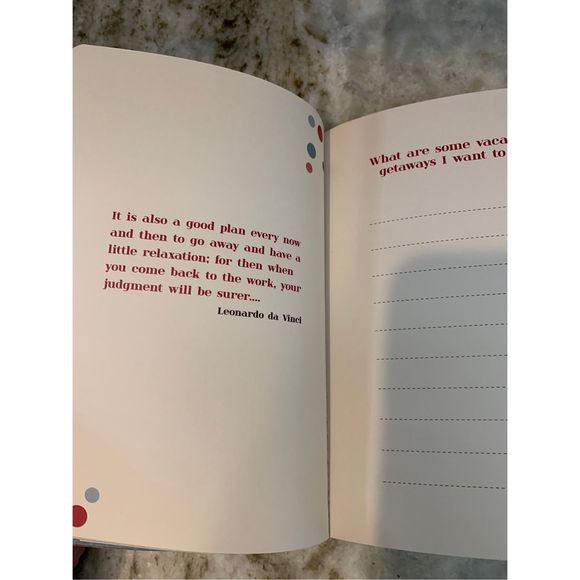 It is also a good plan every now
and then to go away and have a
little relaxation; for then when
you come back to the work, your
judgment will be surer....
Leonardo da Vinci
What are some vaca
getaways I want to